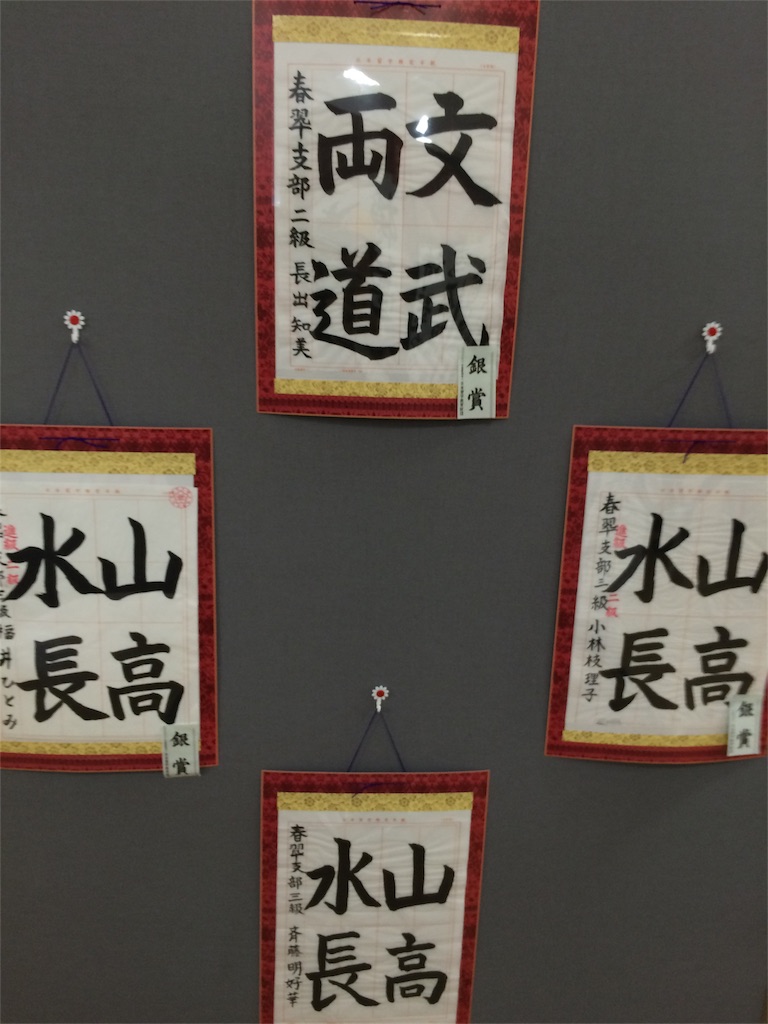 文武
両道
春翠支部 二級 長出知美
銀賞
山高
水長
進級 二級
井ひとみ
銀賞
山高
水長
春翠支部三級 小林枝理子
進級 二級
銀賞
山高
水長
春翠支部三級 斉藤明好華